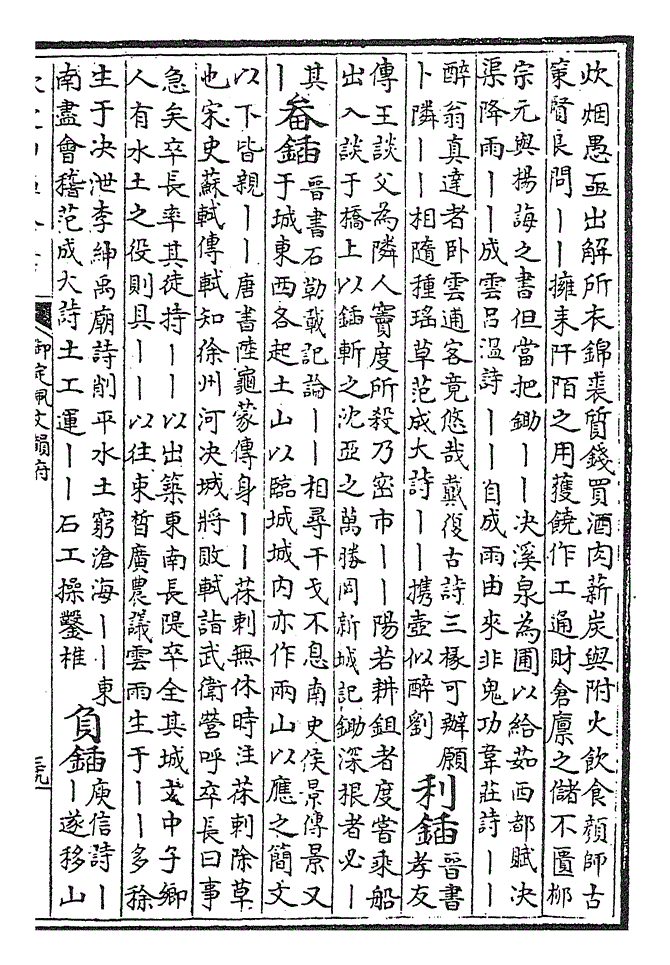 炊烟愚亟出解所衣錦裘質錢買酒肉薪炭與附火飲食顏師古
策賢良問丨丨擁耒阡陌之用獲饒作工通財倉廩之儲不匱柳
宗元與揚誨之書但當把鋤丨丨决溪泉為圃以給茹西都賦决
渠降雨丨丨成雲呂溫詩丨丨自成雨由來非鬼功韋莊詩丨丨
醉翁真達者卧雲逋客竟悠哉戴復古詩三椽可辦願
卜隣丨丨相隨種瑤草范成大詩丨丨攜壺似醉劉
利鍤
晉書
孝友
傳王談父為隣人竇度所殺乃密市丨丨陽若耕鉏者度嘗乘船
出入談于橋上以鍤斬之沈亞之萬勝岡新城記鋤深根者必丨
其
丨
畚鍤
晉書石勒載記論丨丨相尋干戈不息南史侯景傳景又
于城東西各起土山以臨城城内亦作兩山以應之簡文
以下皆親丨丨唐書陸龜蒙傳身丨丨茠刺無休時注茠刺除草
也宋史蘇軾傳軾知徐州河决城將敗軾詣武衛營呼卒長曰事
急矣卒長率其徒持丨丨以出築東南長隄卒全其城文中子鄉
人有水土之役則具丨丨以往束晳廣農議雲雨生于丨丨多稌
生于决泄李紳禹廟詩削平水土窮滄海丨丨東
南盡會稽范成大詩土工運丨丨石工操鑿椎
負鍤
庾信詩丨
丨遂移山
御定佩文韻府